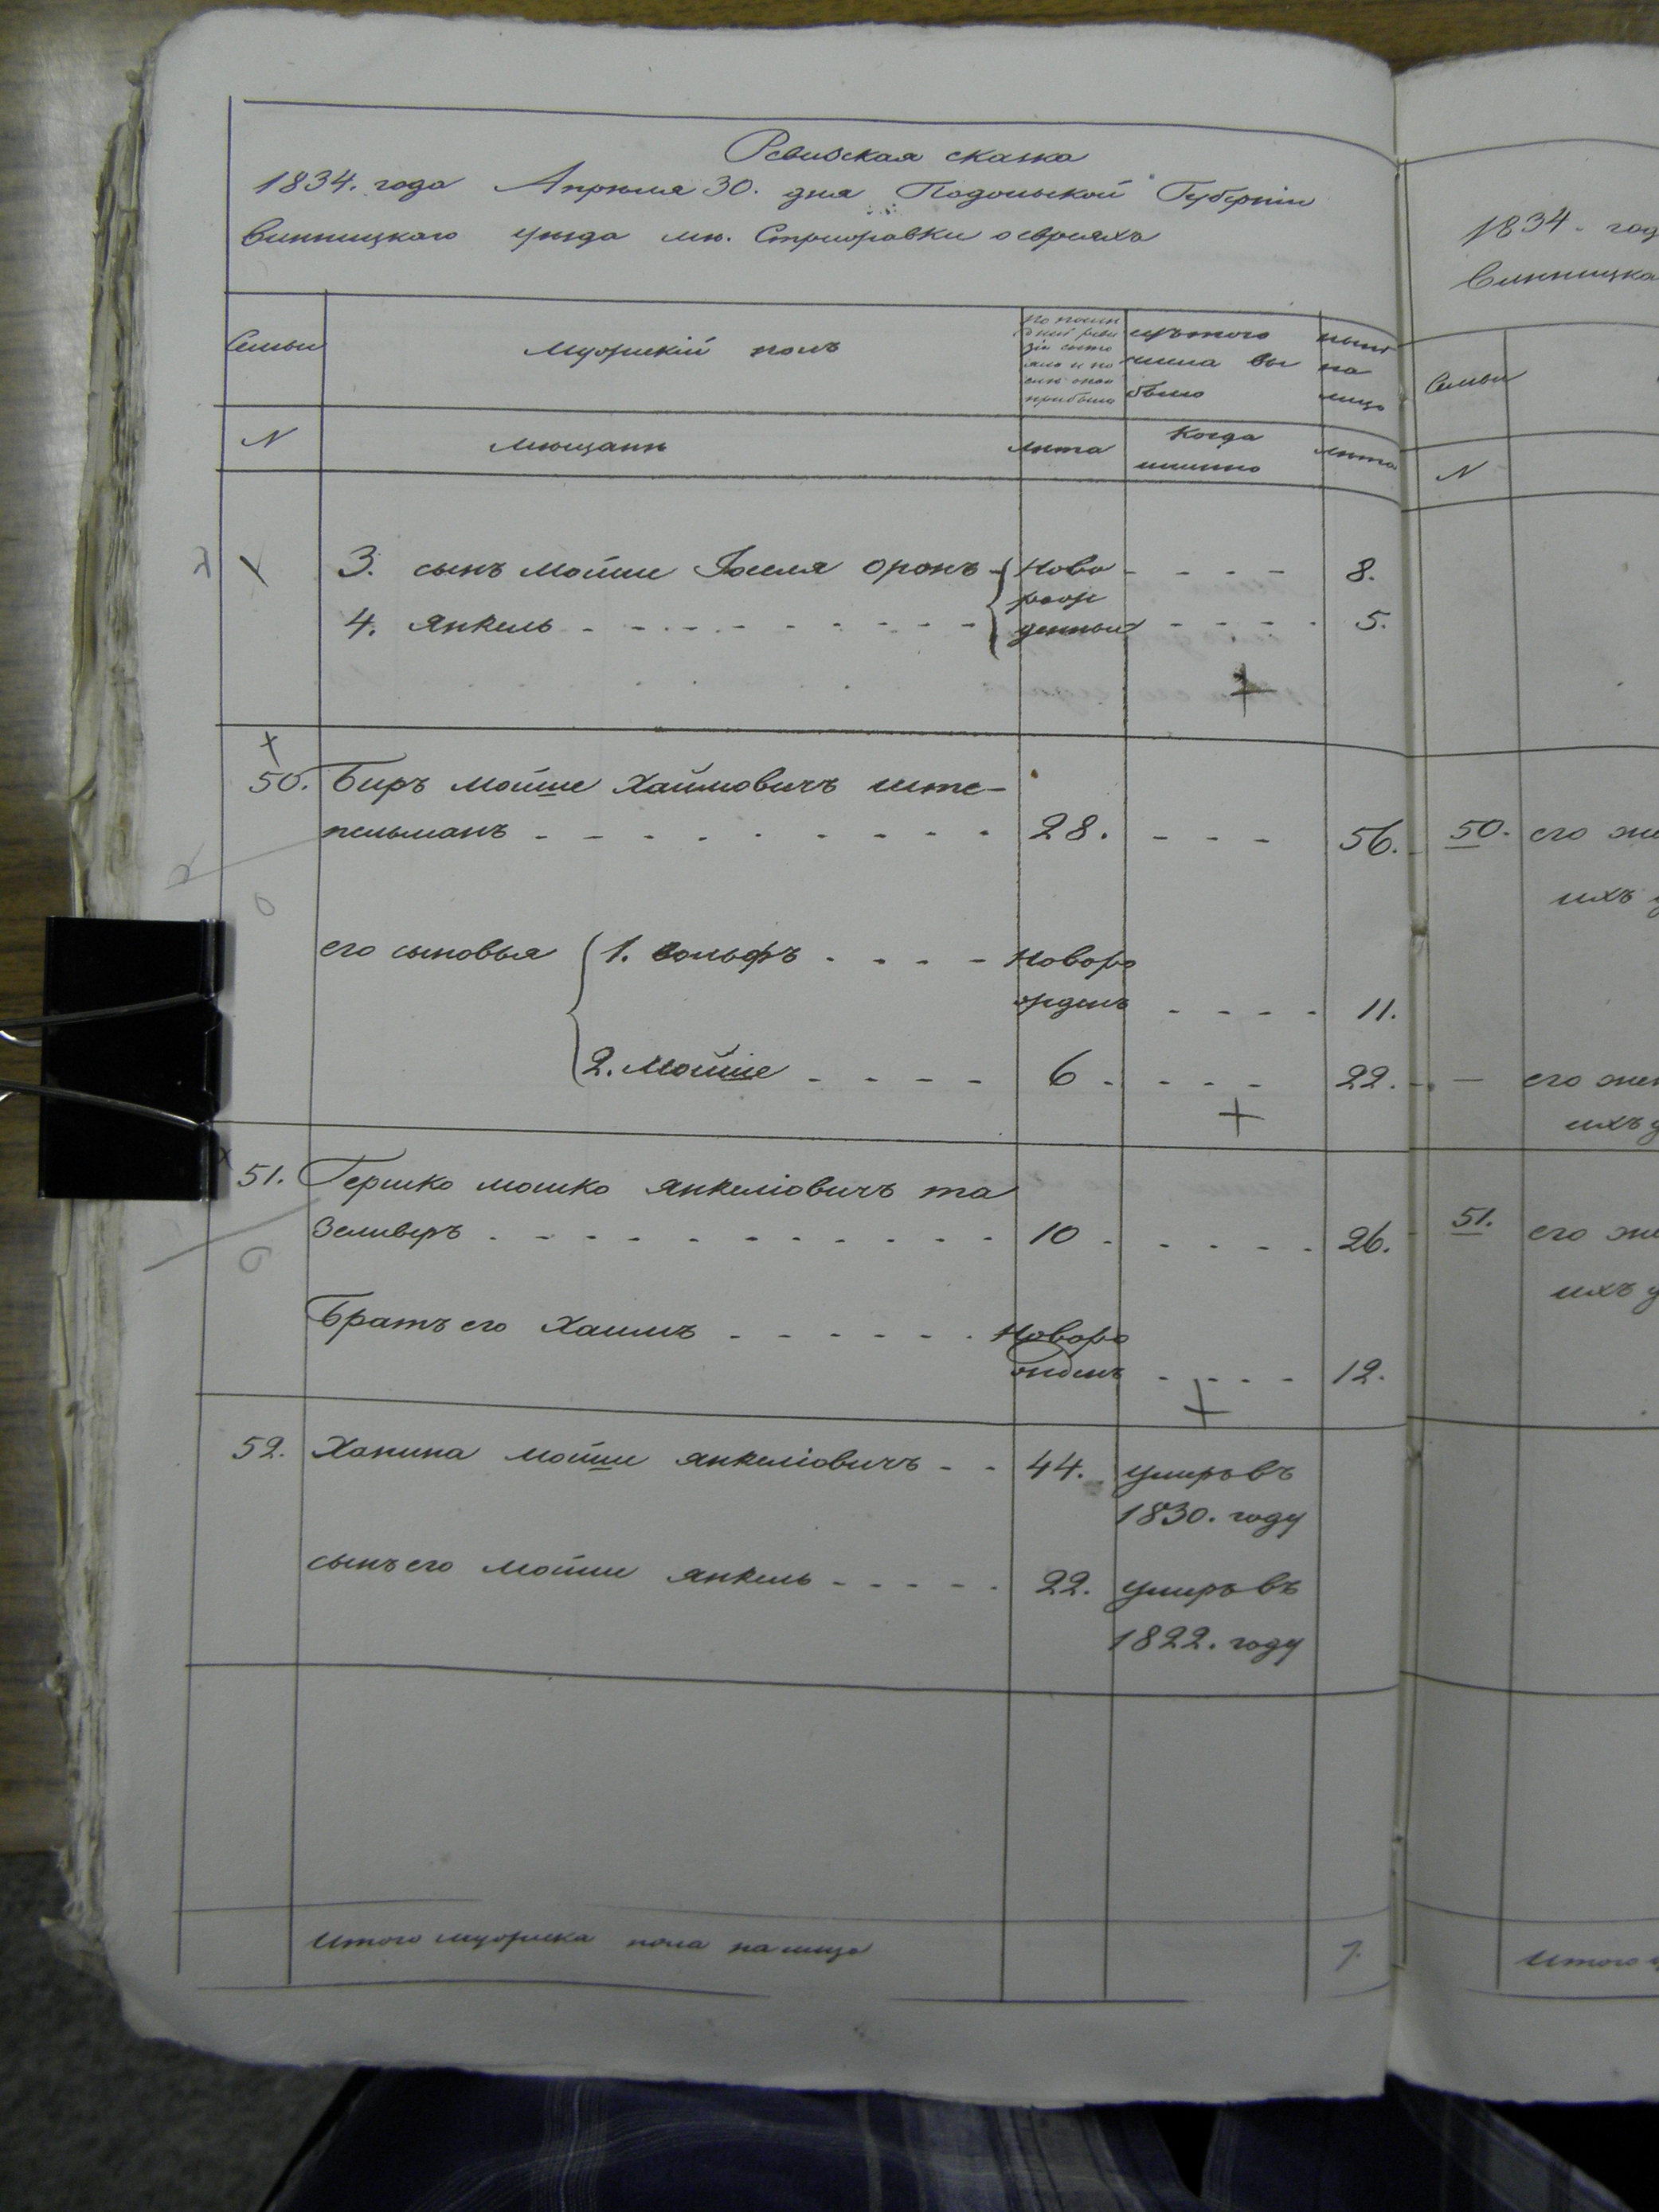 Ревизская сказка
1834. года Апреля 30. дня Подольской Губернiи
Винницкаго уезда мк. Стрижавки о евреяхъ
Семьи
Мужескiй полъ
по после
дней реви
зiи состо
яло и по
прибыло
изъ того
числа вы
было
ныне
на
лицо
N
мещане
лета
Когда
именно
лета
3. сынъ Мойше Иоселя Оронъ - Ново - - - - 8.
рож
4. Янкель - - - - - - - - - денные - - - - 5.
50. Беръ Мойше Хаимовичъ ште-
пельманъ - - - - - - - - - 28. - - - 56.
его сыновья 1. Вольфъ - - - - Новоро
жденъ - - - - 11.
2. Мойше - - - - 6 - - - - 22.
51. Гершко Мошко Янкелiовичъ та
Зеливеръ - - - - - - - - - - - 10 - - - - - 26.
Братъ его Хаимъ - - - - - - Новоро
жденъ - - - - 12.
52. Ханина Мойше Янкелiовичъ - - 44. умеръ въ
1830. году
сынъ его Мойше Янкель - - - - - 22. умеръ въ
1822. году
Итого мужеска пола на лицо 7.
1834. год
Винницка
Семьи
N
50. его же
ихъ
— его жен
ихъ
51. его же
ихъ
Итого